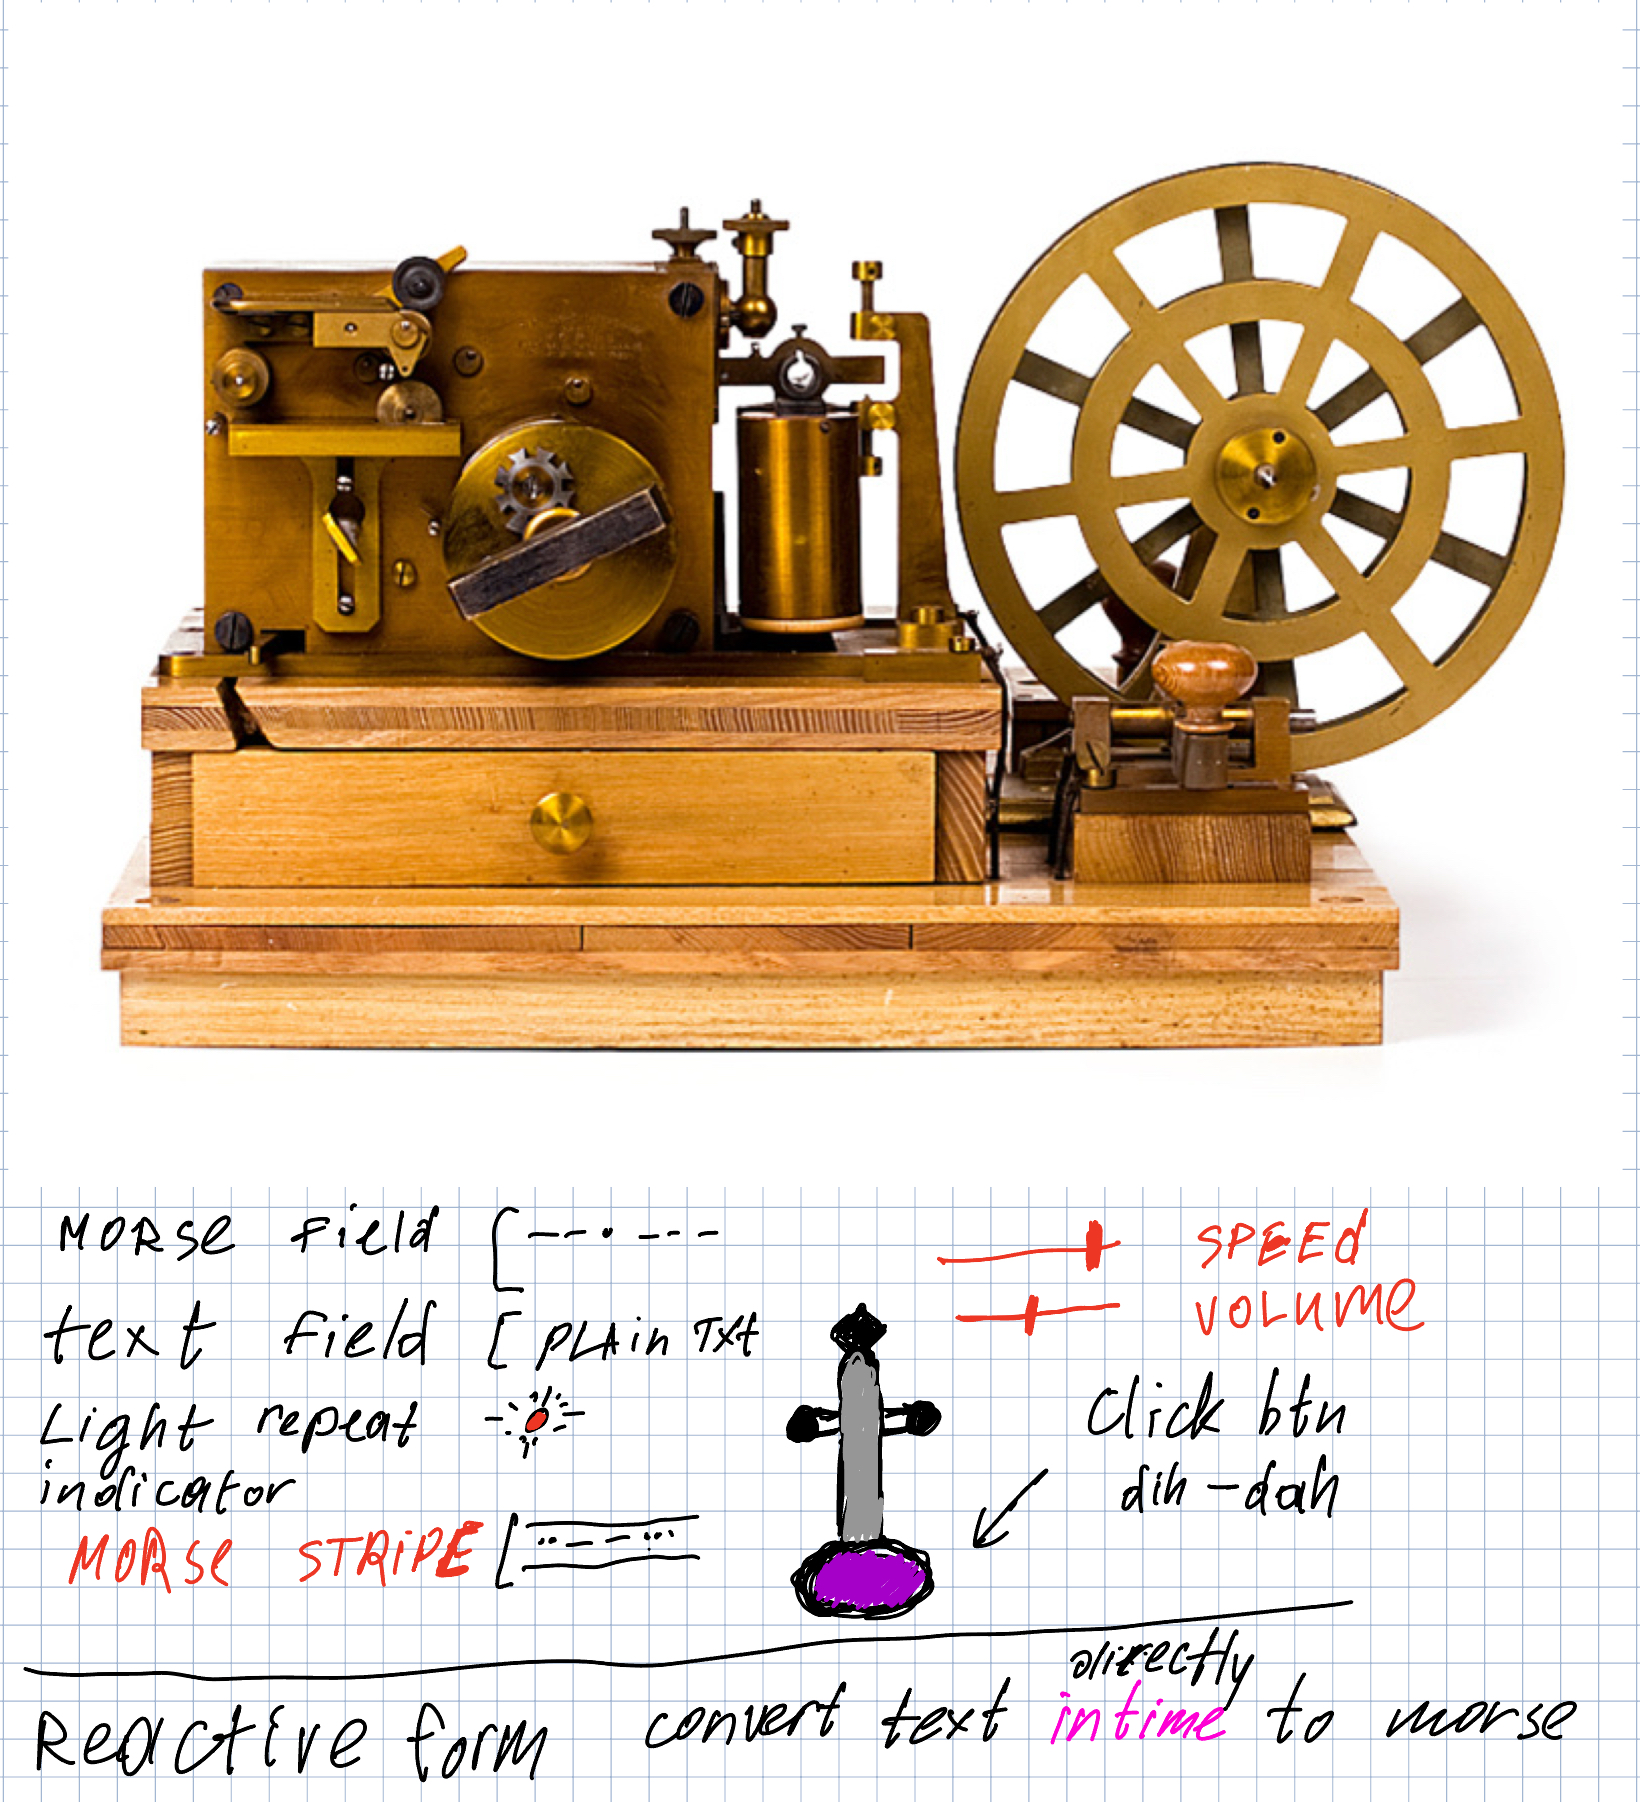 MORSe field [--·---
text field [PLAin Txt
Light repeat
indicator
MORSe STRiPE [··-----···
SPEEd
VOLUMe
Click btn
dih-dah
directly
Reactive form convert text intime to morse